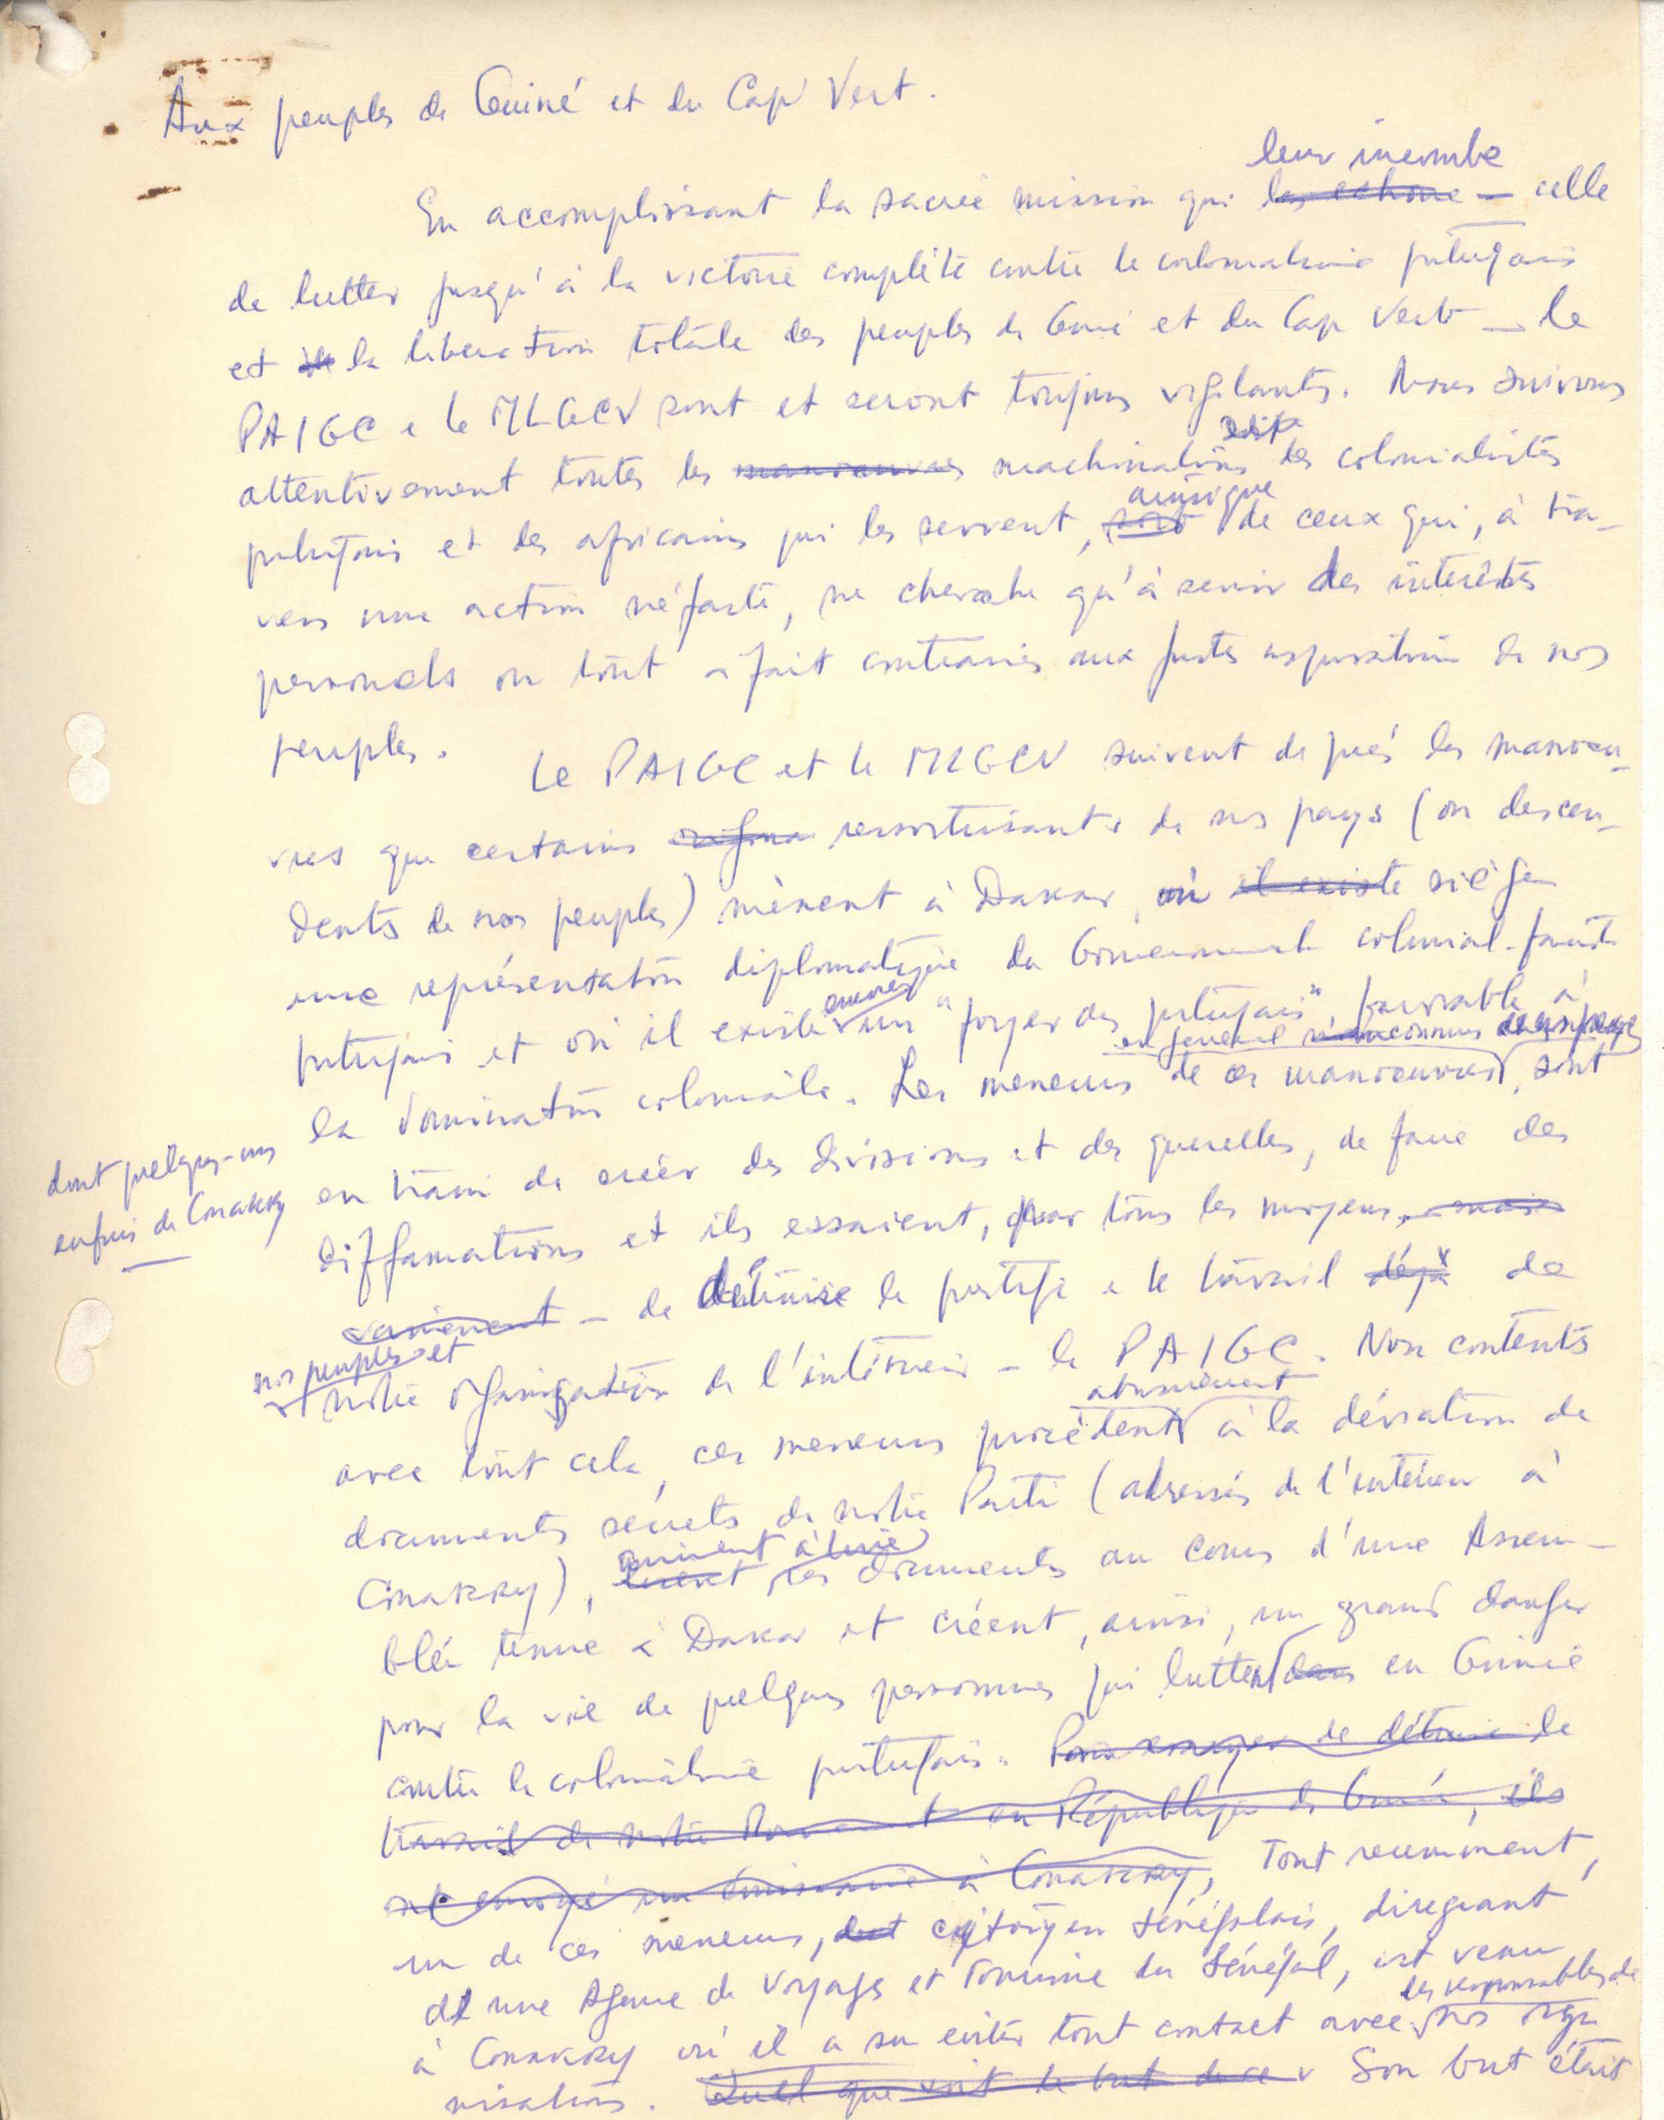 Aux peuples de Guiné et du Cap Vert.
leur incombe
En accomplissant la sacrée mission qui les échoue — celle
de lutter jusqu'à la victoire complète contre le colonialisme portugais
et la libération totale des peuples de Guiné et du Cap Vert — le
PAIGC e le MLGCV sont et seront toujours vigilants. Nous suivrons
attentivement toutes les manoeuvres machinations des colonialistes
ainsi que
portugais et des africains qui les servent, de ceux qui, à tra-
vers une action néfaste, ne cherche qu'à servir des intérêts
personels ou tout a fait contraires aux justes aspirations de nos
peuples.
Le PAIGC et le MLGCV suivent de près les manoeu-
vres que certains ressortissants de nos pays (ou descen-
dents de nos peuples) mènent à Dakar, où il existe siège
une représentation diplomatique du Gouvernement colonial-fasciste
encore
portugais et où il existe un "foyer des portugais", favorable à
en général méconnus de nos peuples
la domination coloniale. Les meneurs de ces manoeuvres, sont
dont quelques-uns
enfuis de Conakry
en train de créer des divisions et des querelles, de faire des
diffamations et ils essaient, par tous les moyens, mais
vainement — de détruire le prestige e le travail déjà de
nos peuples et
notre organisation de l'intérieur — le PAIGC. Non contents
abusivement
avec tout cela, ces meneurs procèdent à la déviation de
documents secrets de notre Parti (adressés de l'intérieur à
Conakry), lisent ces documents au cours d'une Assem-
blée tenue à Dakar et créent, ainsi, un grand danger
pour la vie de quelques personnes qui luttent dans en Guinée
contre le colonialisme portugais. Pour essayer de détruire le
travail de notre Mouvement en République de Guinée, ils
ont envoyé un émissaire à Conakry, Tout recemment,
un de ces meneurs, dont citoyen sénégalais, dirigeant
d'une Agence de Voyages et Tourisme du Sénégal, est venu
les responsables de
à Conakry où il a su eviter tout contact avec nos orga
nisations. Quel que soit le but de ce Son but était